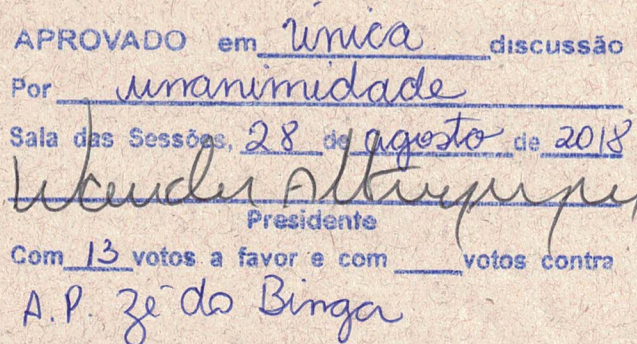 APROVADO em única discussão
Por unanimidade
Sala das Sessões, 28 de agosto de 2018
Presidente
Com 13 votos a favor e com ____ votos contra
A.P. Zé do Binga